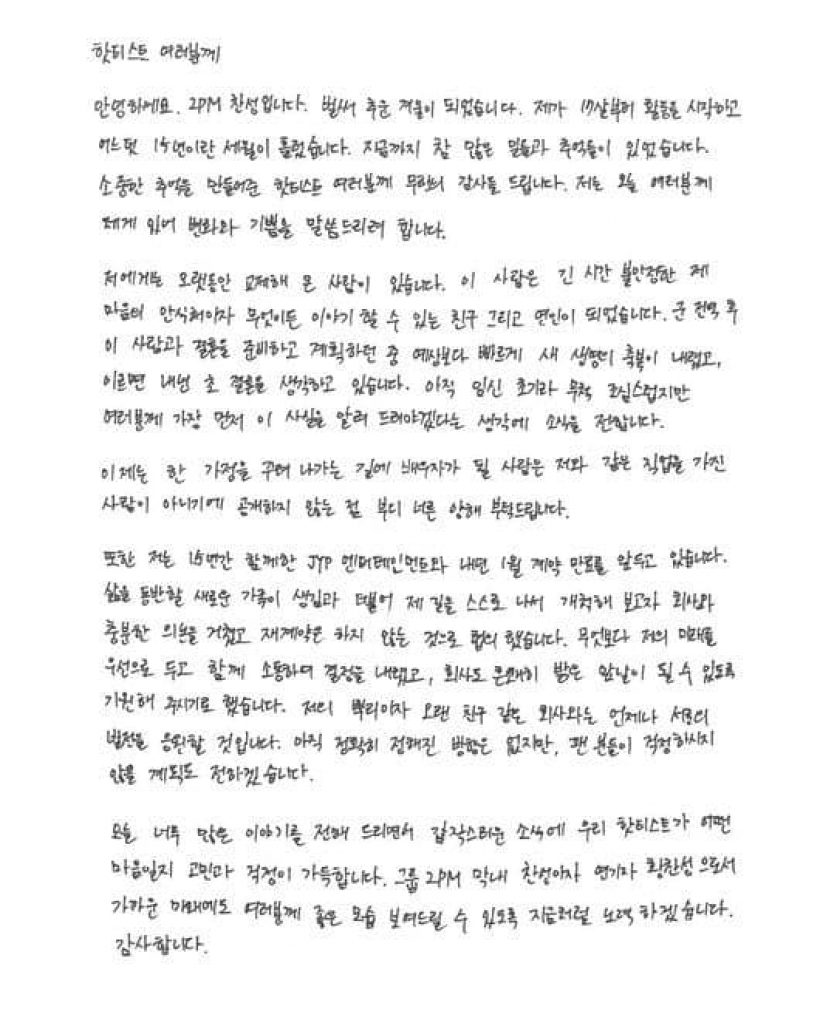 핫티스트 여러분께
안녕하세요. 2PM 찬성입니다. 벌써 추운 겨울이 되었습니다. 제가 17살부터 활동을 시작하고
어느덧 15년이란 세월이 흘렀습니다. 지금까지 참 많은 일들과 추억들이 있었습니다.
소중한 추억을 만들어준 핫티스트 여러분께 무한의 감사를 드립니다. 저는 오늘 여러분께
제게 있어 변화와 기쁨을 말씀드리려 합니다.
저에게는 오랫동안 교제해 온 사람이 있습니다. 이 사람은 긴 시간 불안정한 제
마음의 안식처이자 무엇이든 이야기 할 수 있는 친구 그리고 연인이 되었습니다. 군 전역 후
이 사람과 결혼을 준비하고 계획하던 중 예상보다 빠르게 새 생명의 축복이 내렸고,
이르면 내년 초 결혼을 생각하고 있습니다. 아직 임신 초기라 무척 조심스럽지만
여러분께 가장 먼저 이 사실을 알려 드려야겠다는 생각에 소식을 전합니다.
이제는 한 가정을 꾸려 나가는 길에 배우자가 될 사람은 저와 같은 직업을 가진
사람이 아니기에 공개하지 않는 점 부디 너른 양해 부탁드립니다.
또한 저는 15년간 함께한 JYP 엔터테인먼트와 내년 1월 계약 만료를 앞두고 있습니다.
삶을 동반할 새로운 가족이 생김과 더불어 제 길을 스스로 나서 개척해 보고자 회사와
충분한 의논을 거쳤고 재계약은 하지 않는 것으로 협의 했습니다. 무엇보다 저의 미래를
우선으로 두고 함께 소통하며 결정을 내렸고, 회사도 온전히 밝은 앞날이 될 수 있도록
기원해 주시기로 했습니다. 저의 뿌리이자 오랜 친구 같은 회사와는 언제나 서로의
발전을 응원할 것입니다. 아직 정확히 정해진 방향은 없지만, 팬 분들이 걱정하시지
않을 계획도 전하겠습니다.
오늘 너무 많은 이야기를 전해 드리면서 갑작스러운 소식에 우리 핫티스트가 어떤
마음일지 고민과 걱정이 가득합니다. 그룹 2PM 막내 찬성이자 연기자 황찬성으로서
가까운 미래에도 여러분께 좋은 모습 보여드릴 수 있도록 지금처럼 노력하겠습니다.
감사합니다.